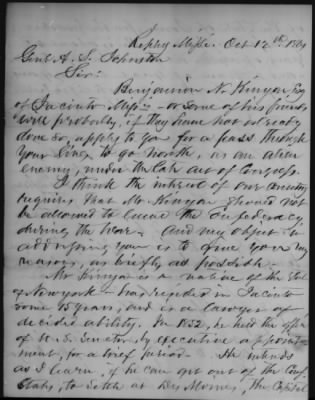 Ripley Missi. Oct 12th 1861
Genl A. S. Johnston
Sir:
Benjamin N. Kinyon Esq
of Jacinto Missi - or some of his friends
will probably, if they have not already
done so, apply to you for a pass through
your lines to go north, as an alien
enemy, under the late act of Congress.
I think the interest of our country
requires that Mr Kinyon should not
be allowed to leave the Confederacy
during the War. And my object in
addressing you is to give you my
reasons, as briefly as possible.
Mr Kinyon is a native of the State
of New york - has resided in Jacinto
some 15 years, and is a lawyer of
decided ability. In 1852, he held the office
of U. S. Senator by executive appoint-
ment, for a brief period. He intends
as I learn, if he can get out of the Conf.
States, to settle at Des Moines, the Capital